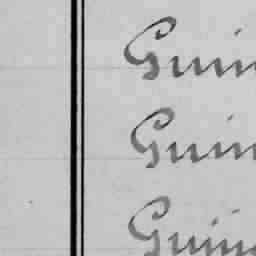 Guin
Guin
Guin